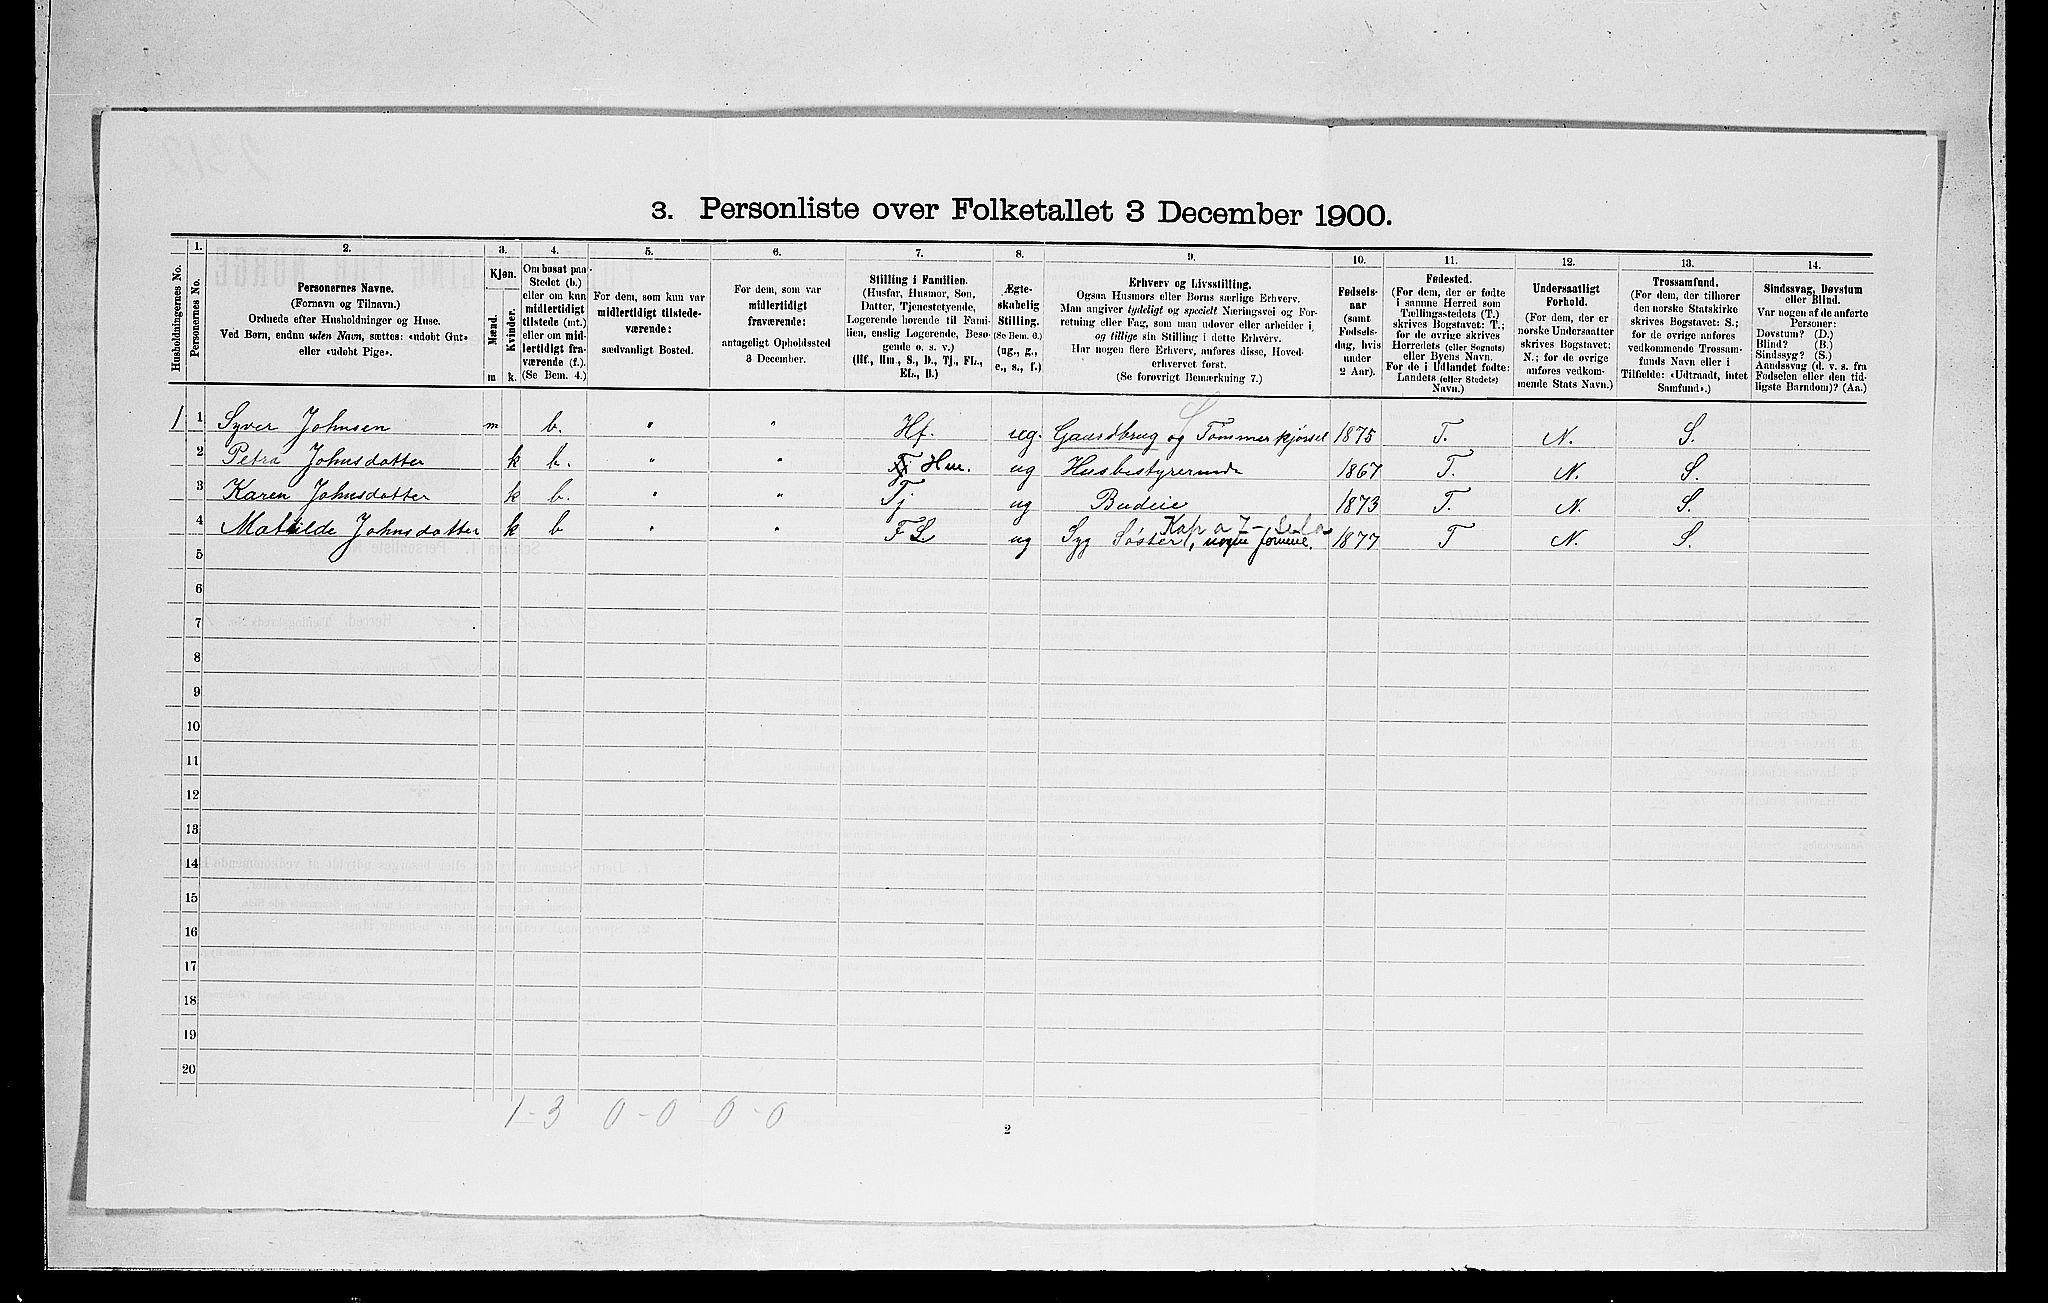 3. Personliste over Folketallet 3 December 1900.
Husholdningernes No.
1.
Personernes No.
2.
Personernes Navne.
(Fornavn og Tilnavn.)
Ordnede efter Husholdninger og Huse.
Ved Børn, endnu uden Navn, sættes: «udøbt Gut»
eller «udøbt Pige».
3.
Kjøn.
Mænd.
Kvinder.
m
k.
4.
Om bosat paa
Stedet (b.)
eller om kun
midlertidigt
tilstede (mt.)
eller om mid-
lertidigt fra-
værende (f.).
(Se Bem. 4.)
5.
For dem, som kun var
midlertidigt tilstede-
værende:
sædvanligt Bosted.
6.
For dem, som var
midlertidigt
fraværende:
antageligt Opholdssted
3 December.
7.
Stilling i Familien.
(Husfar, Husmor, Søn,
Datter, Tjenestetyende,
Logerende hørende til Fami-
lien, enslig Logerende, Besø-
gende o. s. v.)
(Hf., Hm., S., D., Tj., FL.,
EL., B.)
8.
Ægte-
skabelig
Stilling.
(Se Bem. 6.)
(ug., g.,
e., s., f.)
9.
Erhverv og Livsstilling.
Ogsaa Husmors eller Børns særlige Erhverv.
Man angiver tydeligt og specielt Næringsvei og For-
retning eller Fag, som man udøver eller arbeider i,
og tillige sin Stilling i dette Erhverv.
Har nogen flere Erhverv, anføres disse, Hoved-
erhvervet først.
(Se forøvrigt Bemærkning 7.)
10.
Fødsels-
aar
(samt
Fødsels-
dag, hvis
under
2 Aar).
11.
Fødested.
(For dem, der er fødte
i samme Herred som
Tællingsstedets (T.)
skrives Bogstavet: T.;
for de øvrige skrives
Herredets (eller Sognets)
eller Byens Navn.
For de i Udlandet fødte:
Landets (eller Stedets)
Navn.)
12.
Undersaatligt
Forhold.
(For dem, der er
norske Undersaatter
skrives Bogstavet:
N.; for de øvrige
anføres vedkom-
mende Stats Navn.)
13.
Trossamfund.
(For dem, der tilhører
den norske Statskirke
skrives Bogstavet: S.;
for de øvrige anføres
vedkommende Trossam-
funds Navn eller i
Tilfælde: «Udtraadt, intet
Samfund».)
14.
Sindssvag, Døvstum
eller Blind.
Var nogen af de anførte
Personer:
Døvstum? (D.)
Blind? (B.)
Sindssyg? (S.)
Aandssvag (d. v. s. fra
Fødselen eller den tid-
ligste Barndom)? (Aa.)
1 1 Syver Johnsen m b. " " Hf. ug. Gaardbrug og Tømmerkjørsel 1875 T. N. S.
2 Petra Johnsdatter k b. " " Tj Hm. ug Husbestyrerinde 1867 T. N. S.
3 Karen Johnsdatter k b. " " Tj. ug Budeie 1873 T. N. S.
4 Mathilde Johnsdatter k b " " FL ug Syg Søster, 1877 T N. S.
5
6
7
8
9
10
11
12
13
14
15
16
17
18
19
20
1-3 0-0 0-0
2